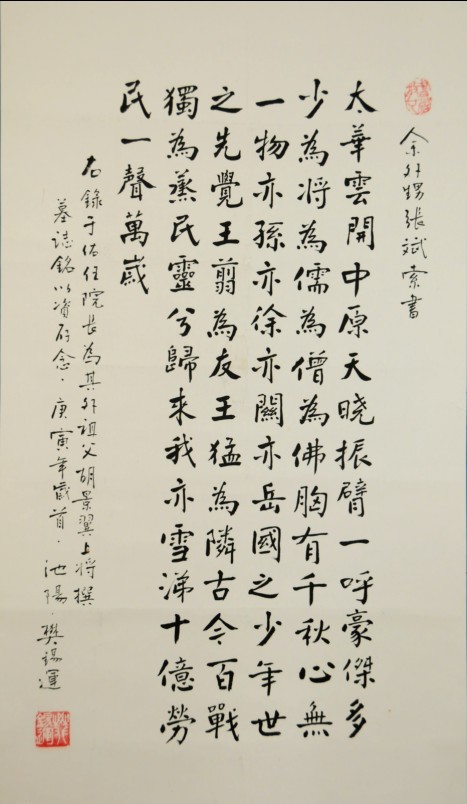 余外甥張斌索書
太華雲開中原天曉振臂一呼豪傑多
少為將為儒為僧為佛胸有千秋心無
一物亦孫亦徐亦關亦岳國之少年世
之先覺王翦為友王猛為隣古今百戰
獨為蒸民靈兮歸來我亦雪涕十億勞
民一聲萬歲
右錄于佑任院長為其外祖父胡景翼上將撰
墓誌銘以資存念．庚寅年歲首．池陽．樊錫運